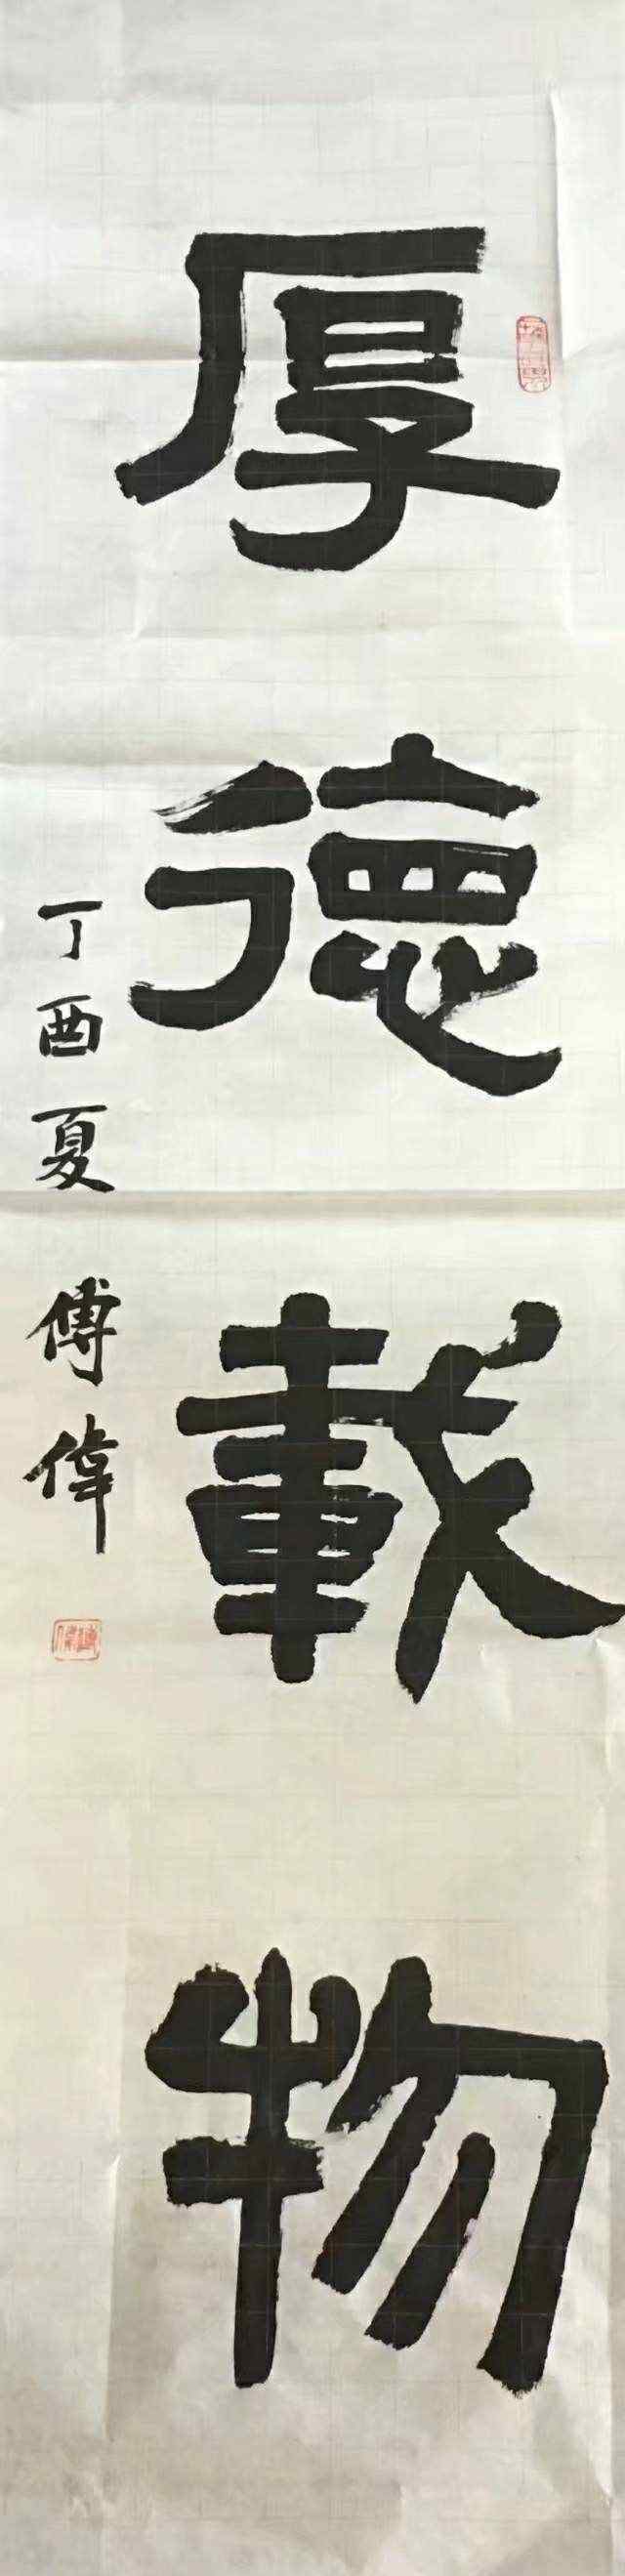 厚德載物
丁酉夏 傅偉